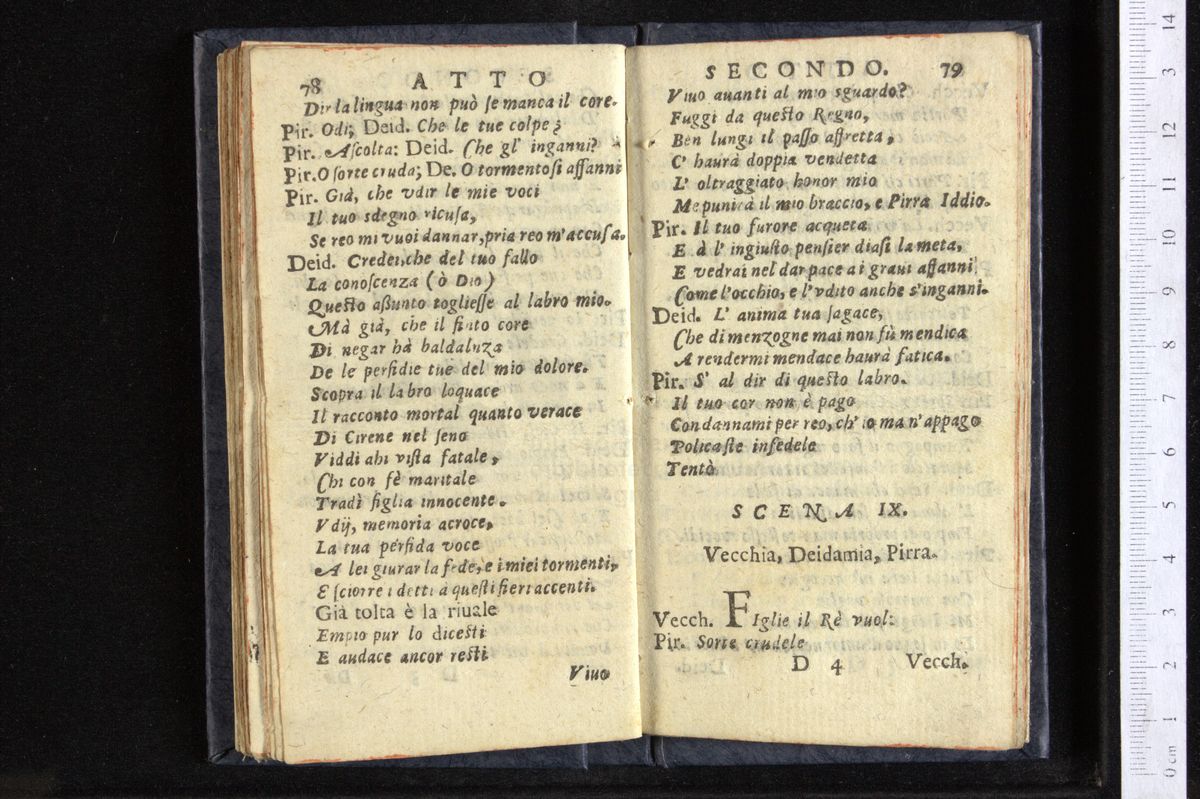 78 ATTO
Dir la lingua non può se manca il core.
Pir. Odi; Deid. Che le tue colpe?
Pir. Ascolta: Deid. Che gl' inganni?
Pir. O sorte cruda; De. O tormentosi affanni
Pir. Già, che vdir le mie voci
Il tuo sdegno ricusa,
Se reo mi vuoi dannar, pria reo m'accusa.
Deid. Credei, che del tuo fallo
La conoscenza (ò Dio)
Questo assunto togliesse al labro mio.
Mà già, che il finto core
Di negar hà baldanza
De le perfidie tue del mio dolore.
Scopra il labro loquace
Il racconto mortal quanto verace
Di Cirene nel seno
Viddi ahi vista fatale,
Chi con fè maritale
Tradì figlia innocente.
Vdij, memoria acroce,
La tua perfida voce
A lei giurar la fede, e i miei tormenti,
E sciorre i detti a questi fieri accenti.
Già tolta è la riuale
Empio pur lo dicesti
E audace ancor resti
Viuo
SECONDO. 79
Viuo auanti al mio sguardo?
Fuggi da questo Regno,
Ben lungi il passo affretta,
C' haurà doppia vendetta
L' oltraggiato honor mio
Me punirà il mio braccio, e Pirra Iddio.
Pir. Il tuo furore acqueta
E à l' ingiusto pensier diasi la meta,
E vedrai nel dar pace a i graui affanni
Come l'occhio, e l'vdito anche s'inganni.
Deid. L' anima tua sagace,
Che di menzogne mai non fù mendica
A rendermi mendace haurà fatica.
Pir. S' al dir di questo labro.
Il tuo cor non è pago
Condannami per reo, ch' io ma n'appago
Policaste infedele
Tentò
SCENA IX.
Vecchia, Deidamia, Pirra.
Vecch. FIglie il Rè vuol:
Pir. Sorte crudele
D 4 Vecch.
0 cm 1 2 3 4 5 6 7 8 9 10 11 12 13 14